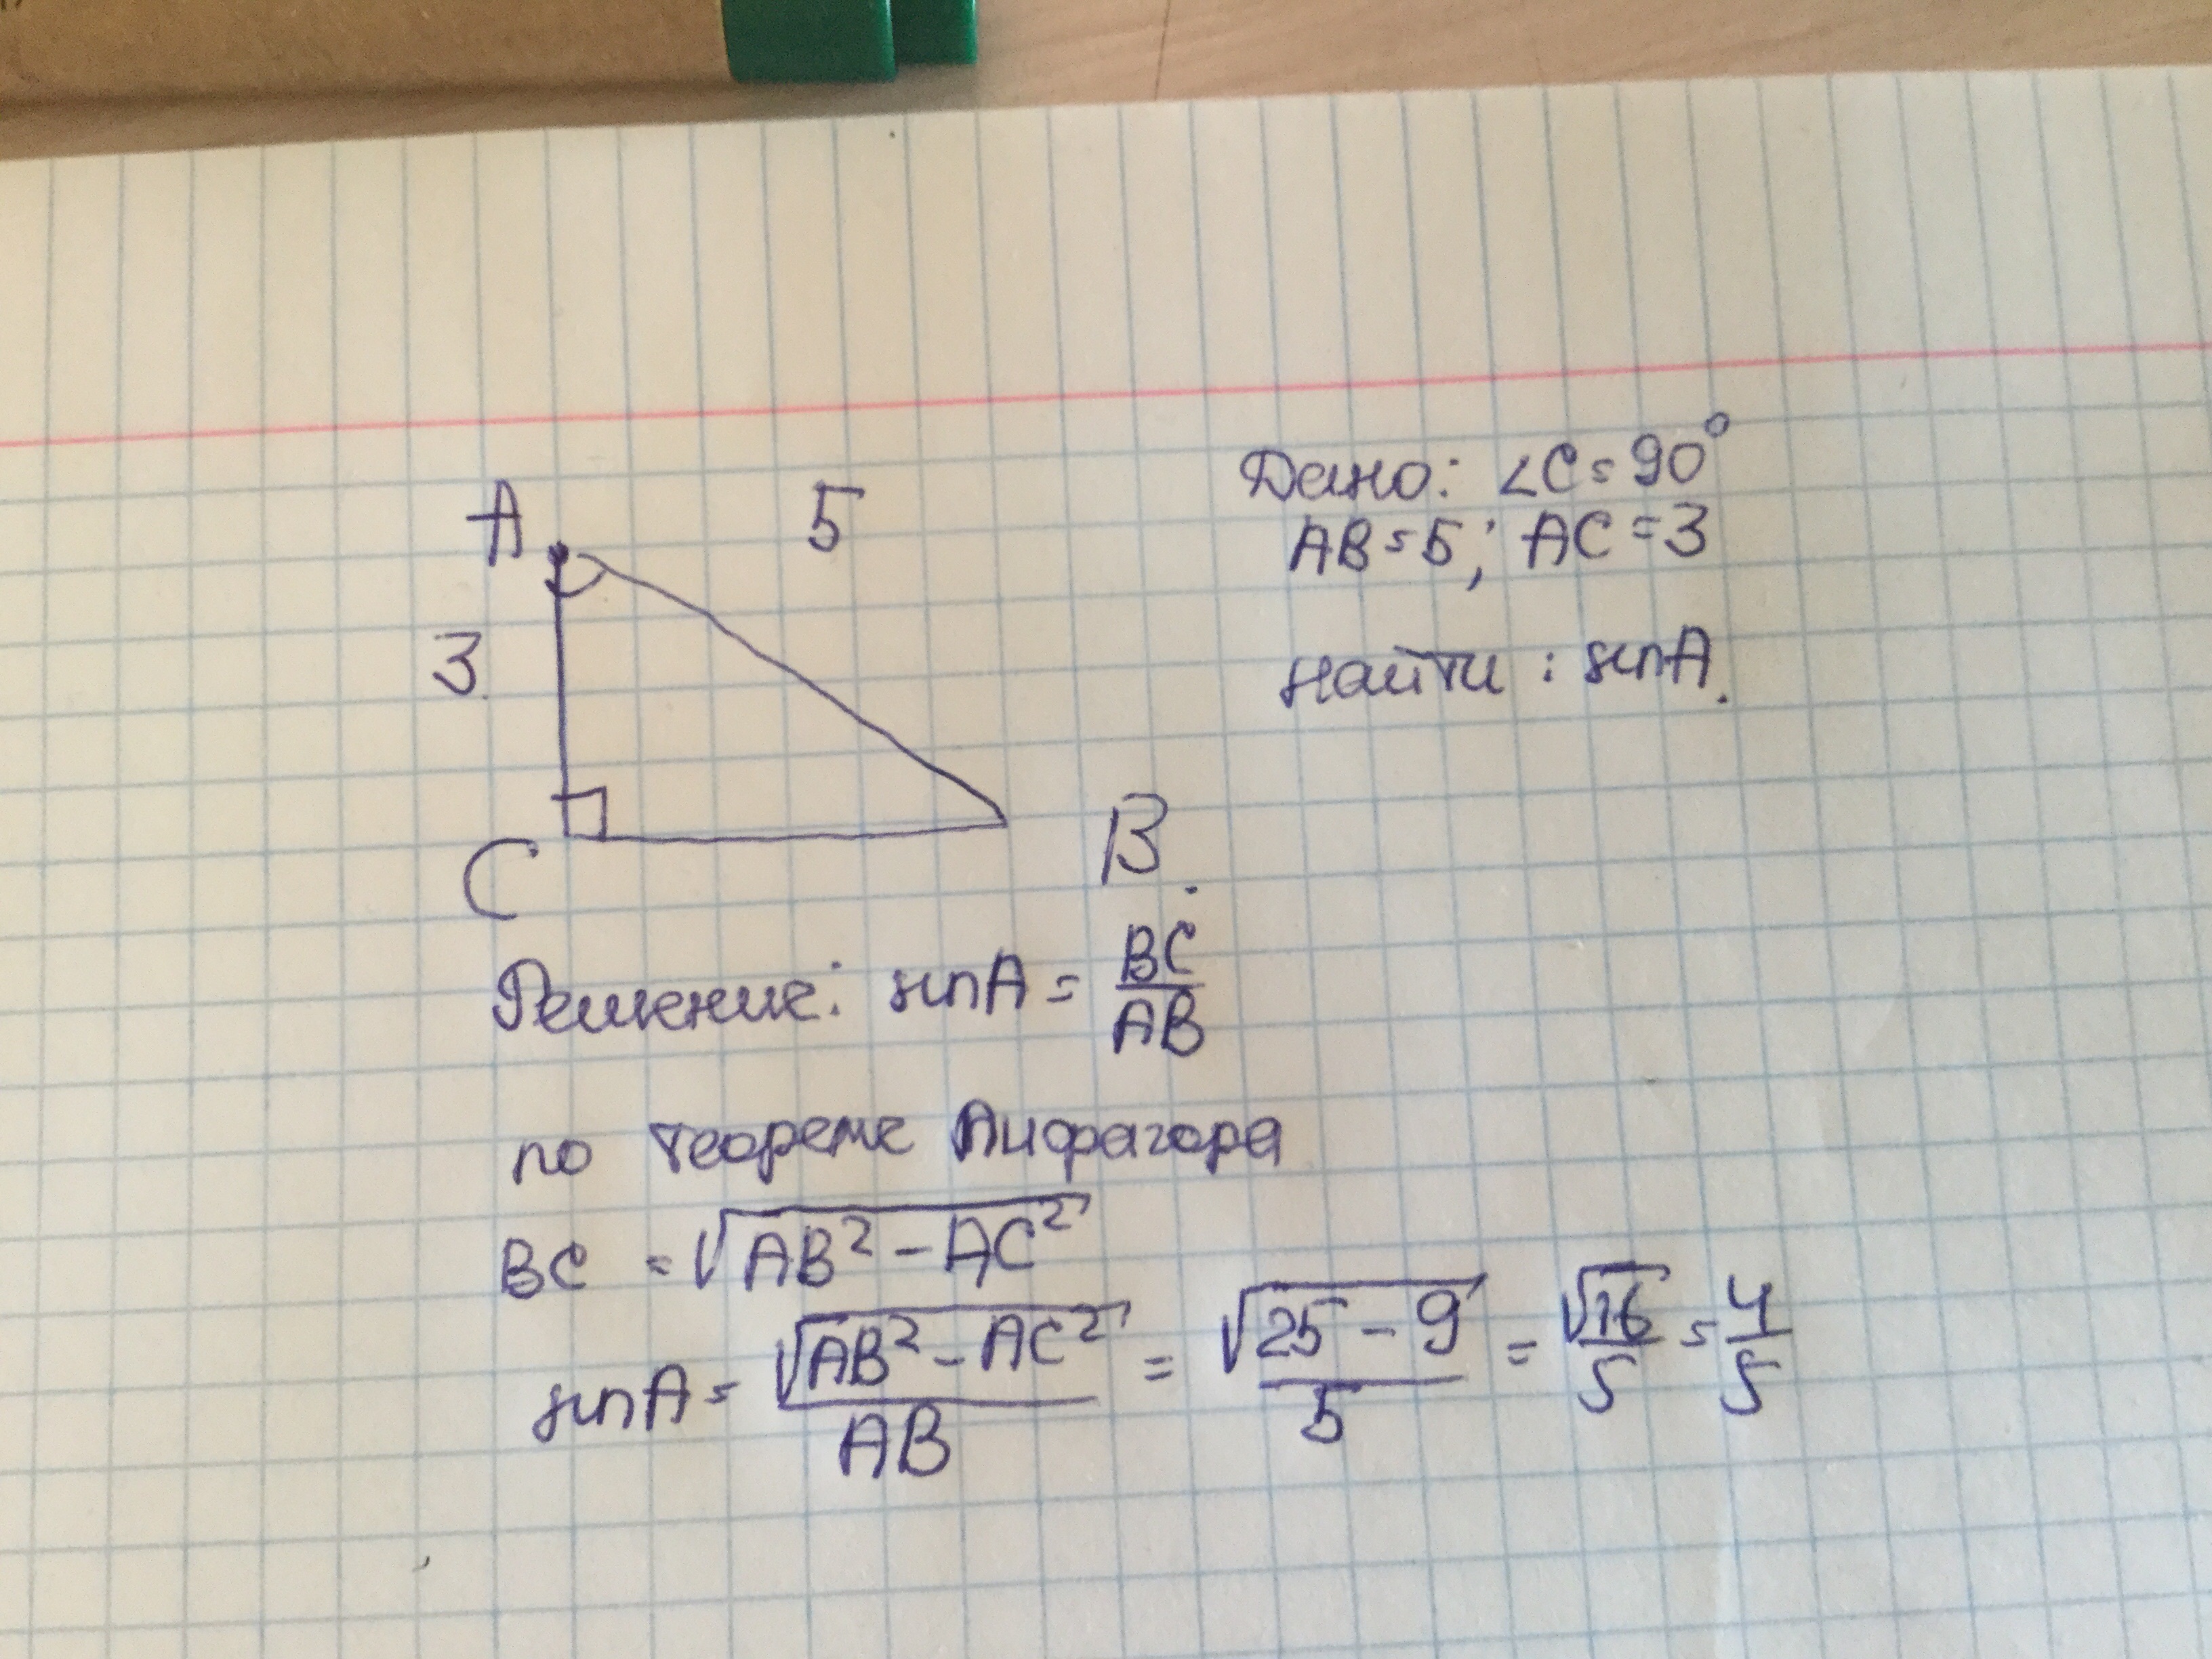 A 5
3
C B.
Дано: ∠C = 90°
AB = 5; AC = 3
найти: sinA.
Решение: sinA = BC/AB
по теореме Пифагора
BC = √(AB² - AC²)
sinA = √(AB² - AC²)/AB = √(25 - 9)/5 = √16/5 = 4/5